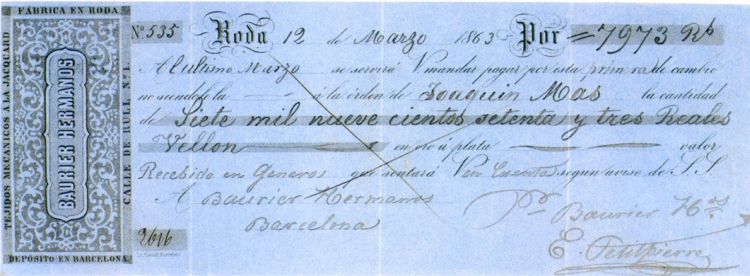 FÁBRICA EN RODA
TEJIDOS MECÁNICOS Á LA JACQUARD
BAURIER HERMANOS
CALLE DE RULL Nº 1.
DEPÓSITO EN BARCELONA
Nº 535 Roda 12 de Marzo 1863 Por = 7973 Rs
Al ultimo Marzo se servirá V. mandar pagar por esta primera de cambio
no siendolo la — á la órden de Joaquin Mas la cantidad
de Siete mil nueve cientos setenta y tres Reales
Vellon en oro ú plata valor
Recebido en Generos que sentará V. en Cuenta segun aviso de S.S.
A Baurier Hermanos
Barcelona
2616
Pr. Baurier Hos.
E. Petitpierre